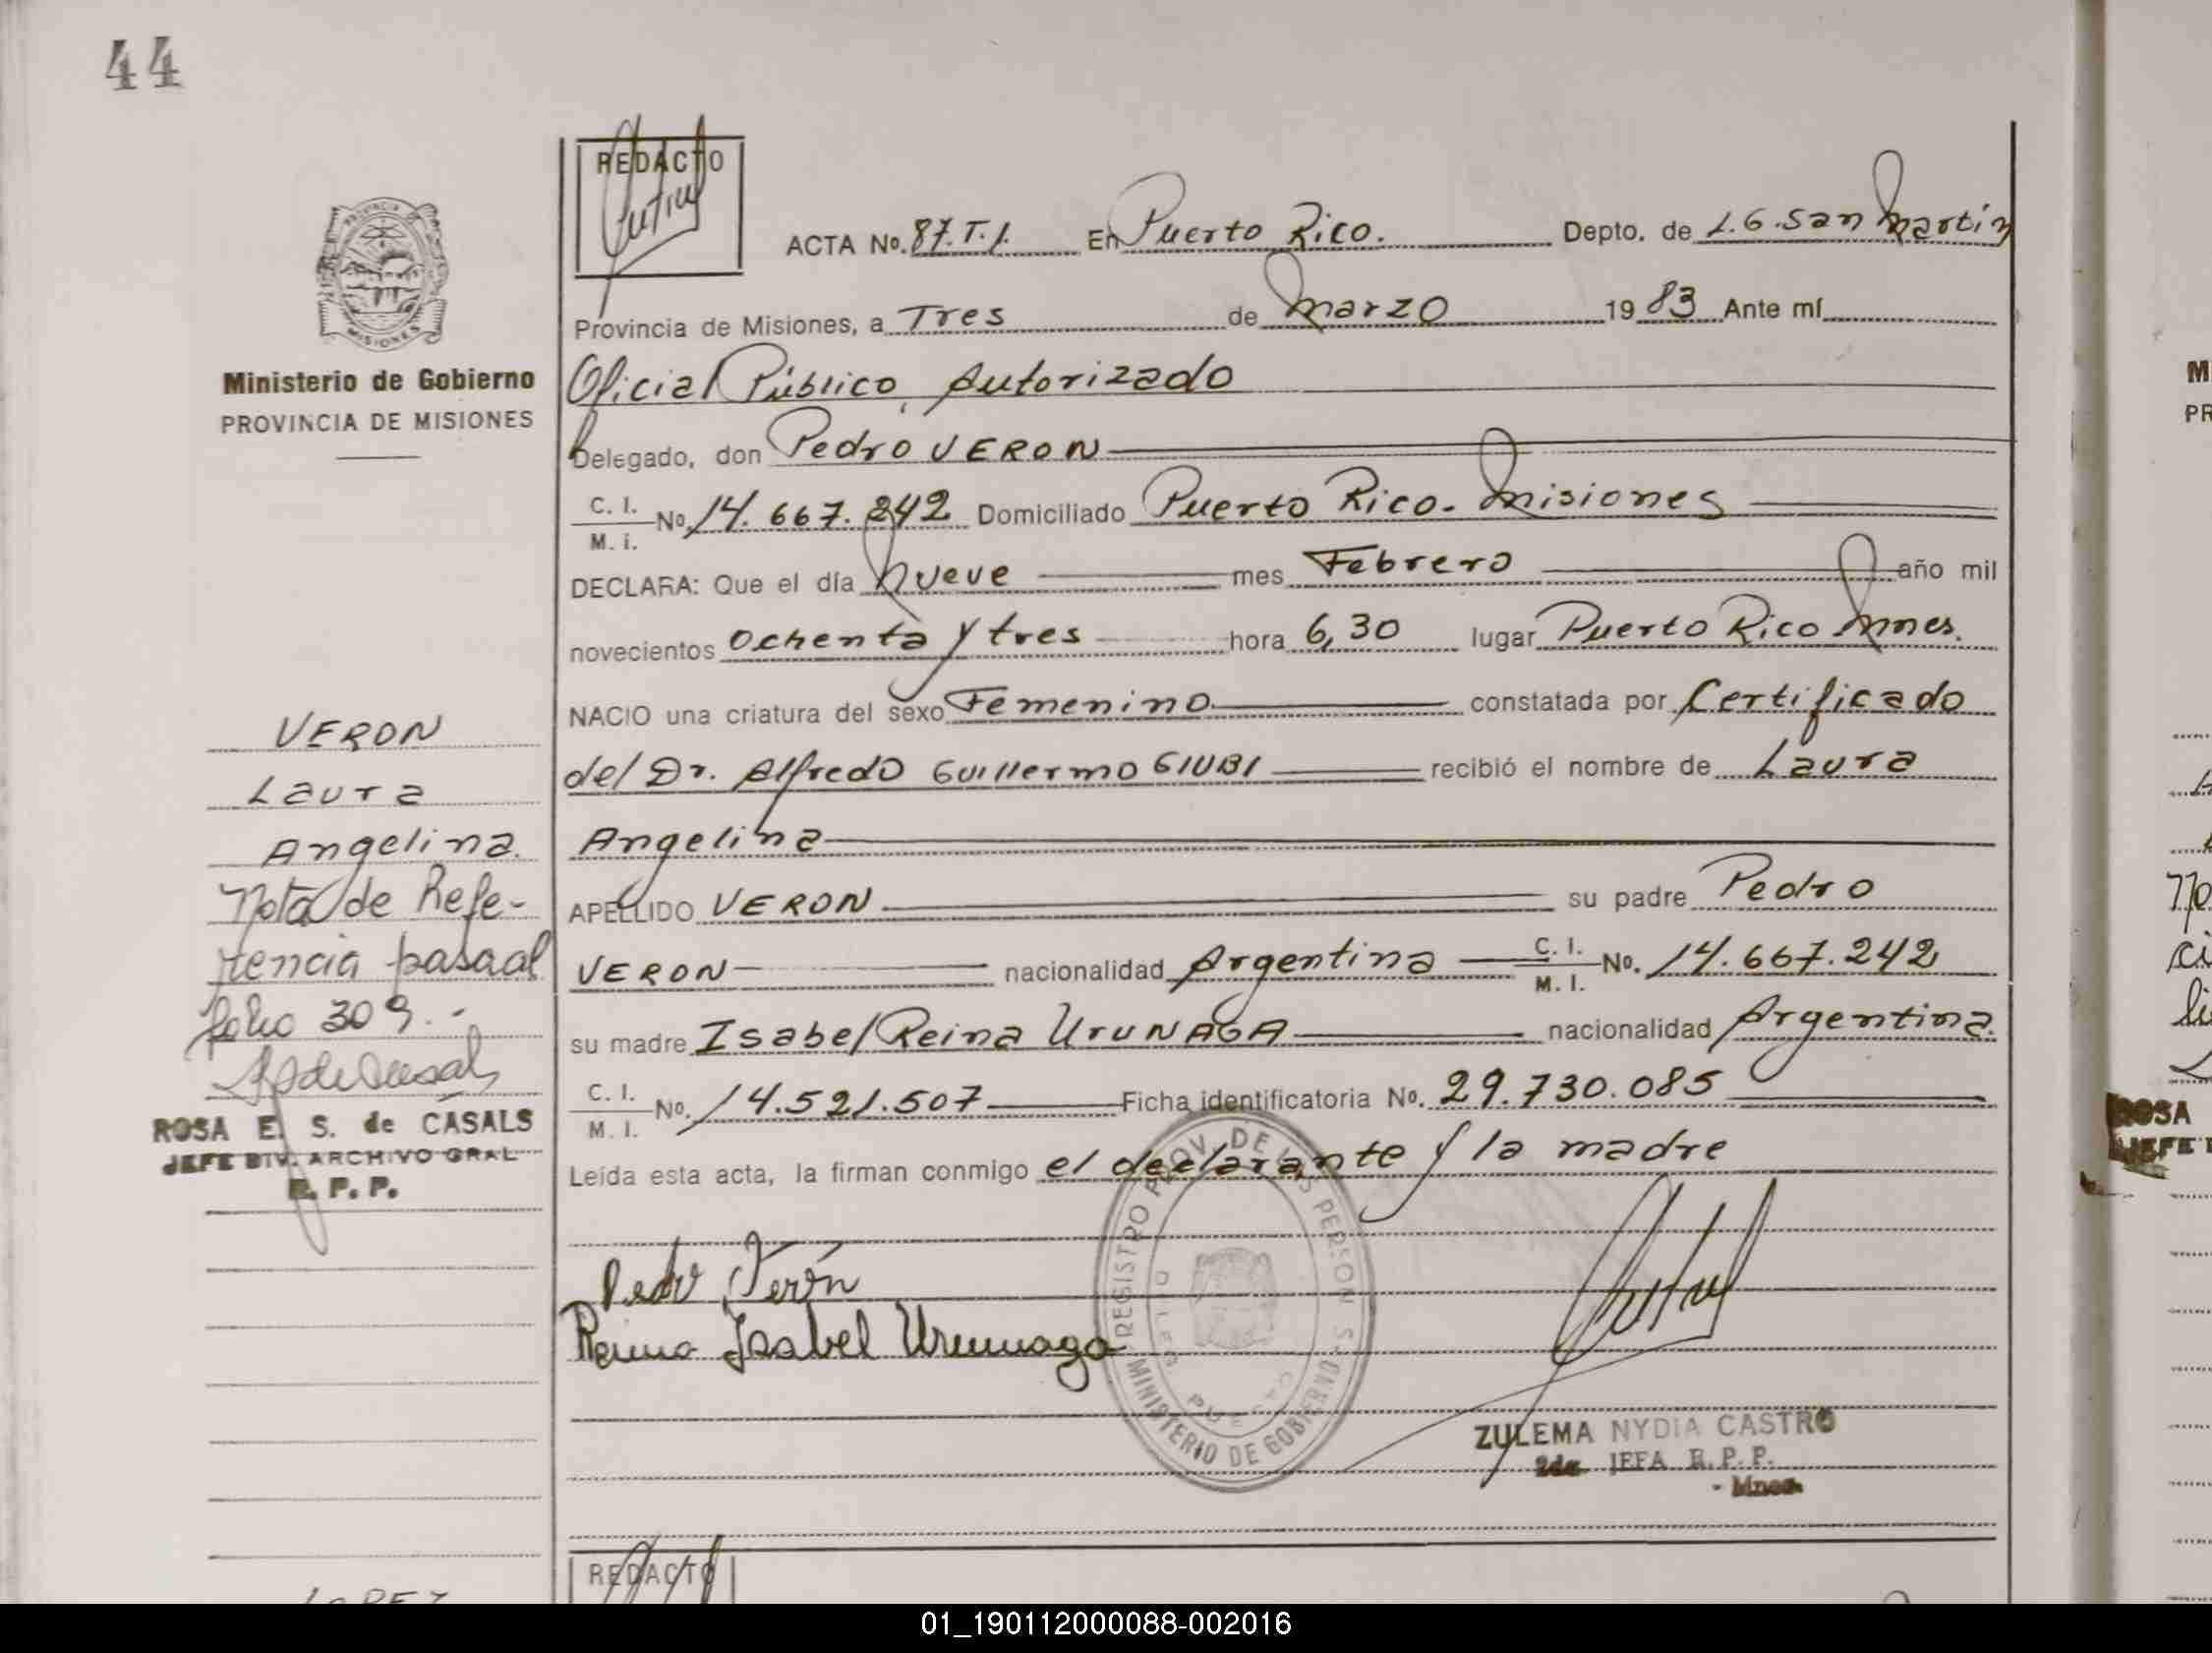 44
REDACTO
ACTA No. 87.T.1. En Puerto Rico. Depto. de L.G. San Martín
Provincia de Misiones, a Tres de Marzo 19 83 Ante mí
Oficial Público, Autorizado
Delegado, don Pedro VERON
C. I.
M. i. No. 14.667.242 Domiciliado Puerto Rico. Misiones
DECLARA: Que el día Nueve mes Febrero año mil
novecientos Ochenta y tres hora 6,30 lugar Puerto Rico Mnes.
NACIO una criatura del sexo Femenino constatada por Certificado
del Dr. Alfredo Guillermo GIUBI recibió el nombre de Laura
Angelina
APELLIDO VERON su padre Pedro
VERON nacionalidad Argentina C. I.
M. I. No. 14.667.242
su madre Isabel Reina UruNAGA nacionalidad Argentina.
C. I.
M. I. No. 14.521.507 Ficha identificatoria No. 29.730.085
Leída esta acta, la firman conmigo el declarante y la madre
Pedro Verón
Reina Isabel Urunaga
REGISTRO PROV. DE LAS PERSONAS
MINISTERIO DE GOBIERNO
ZULEMA NYDIA CASTRO
2da JEFA R. P. P.
- Mnes.
REDACTO
PROVINCIA DE
MISIONES
Ministerio de Gobierno
PROVINCIA DE MISIONES
VERON
Laura
Angelina.
Nota de Refe-
rencia pasa al
folio 309.-
ROSA E. S. de CASALS
JEFE DIV. ARCHIVO GRAL
R. P. P.
LOPEZ
M
PR
No
ci
ROSA
JEFE
01_190112000088-002016